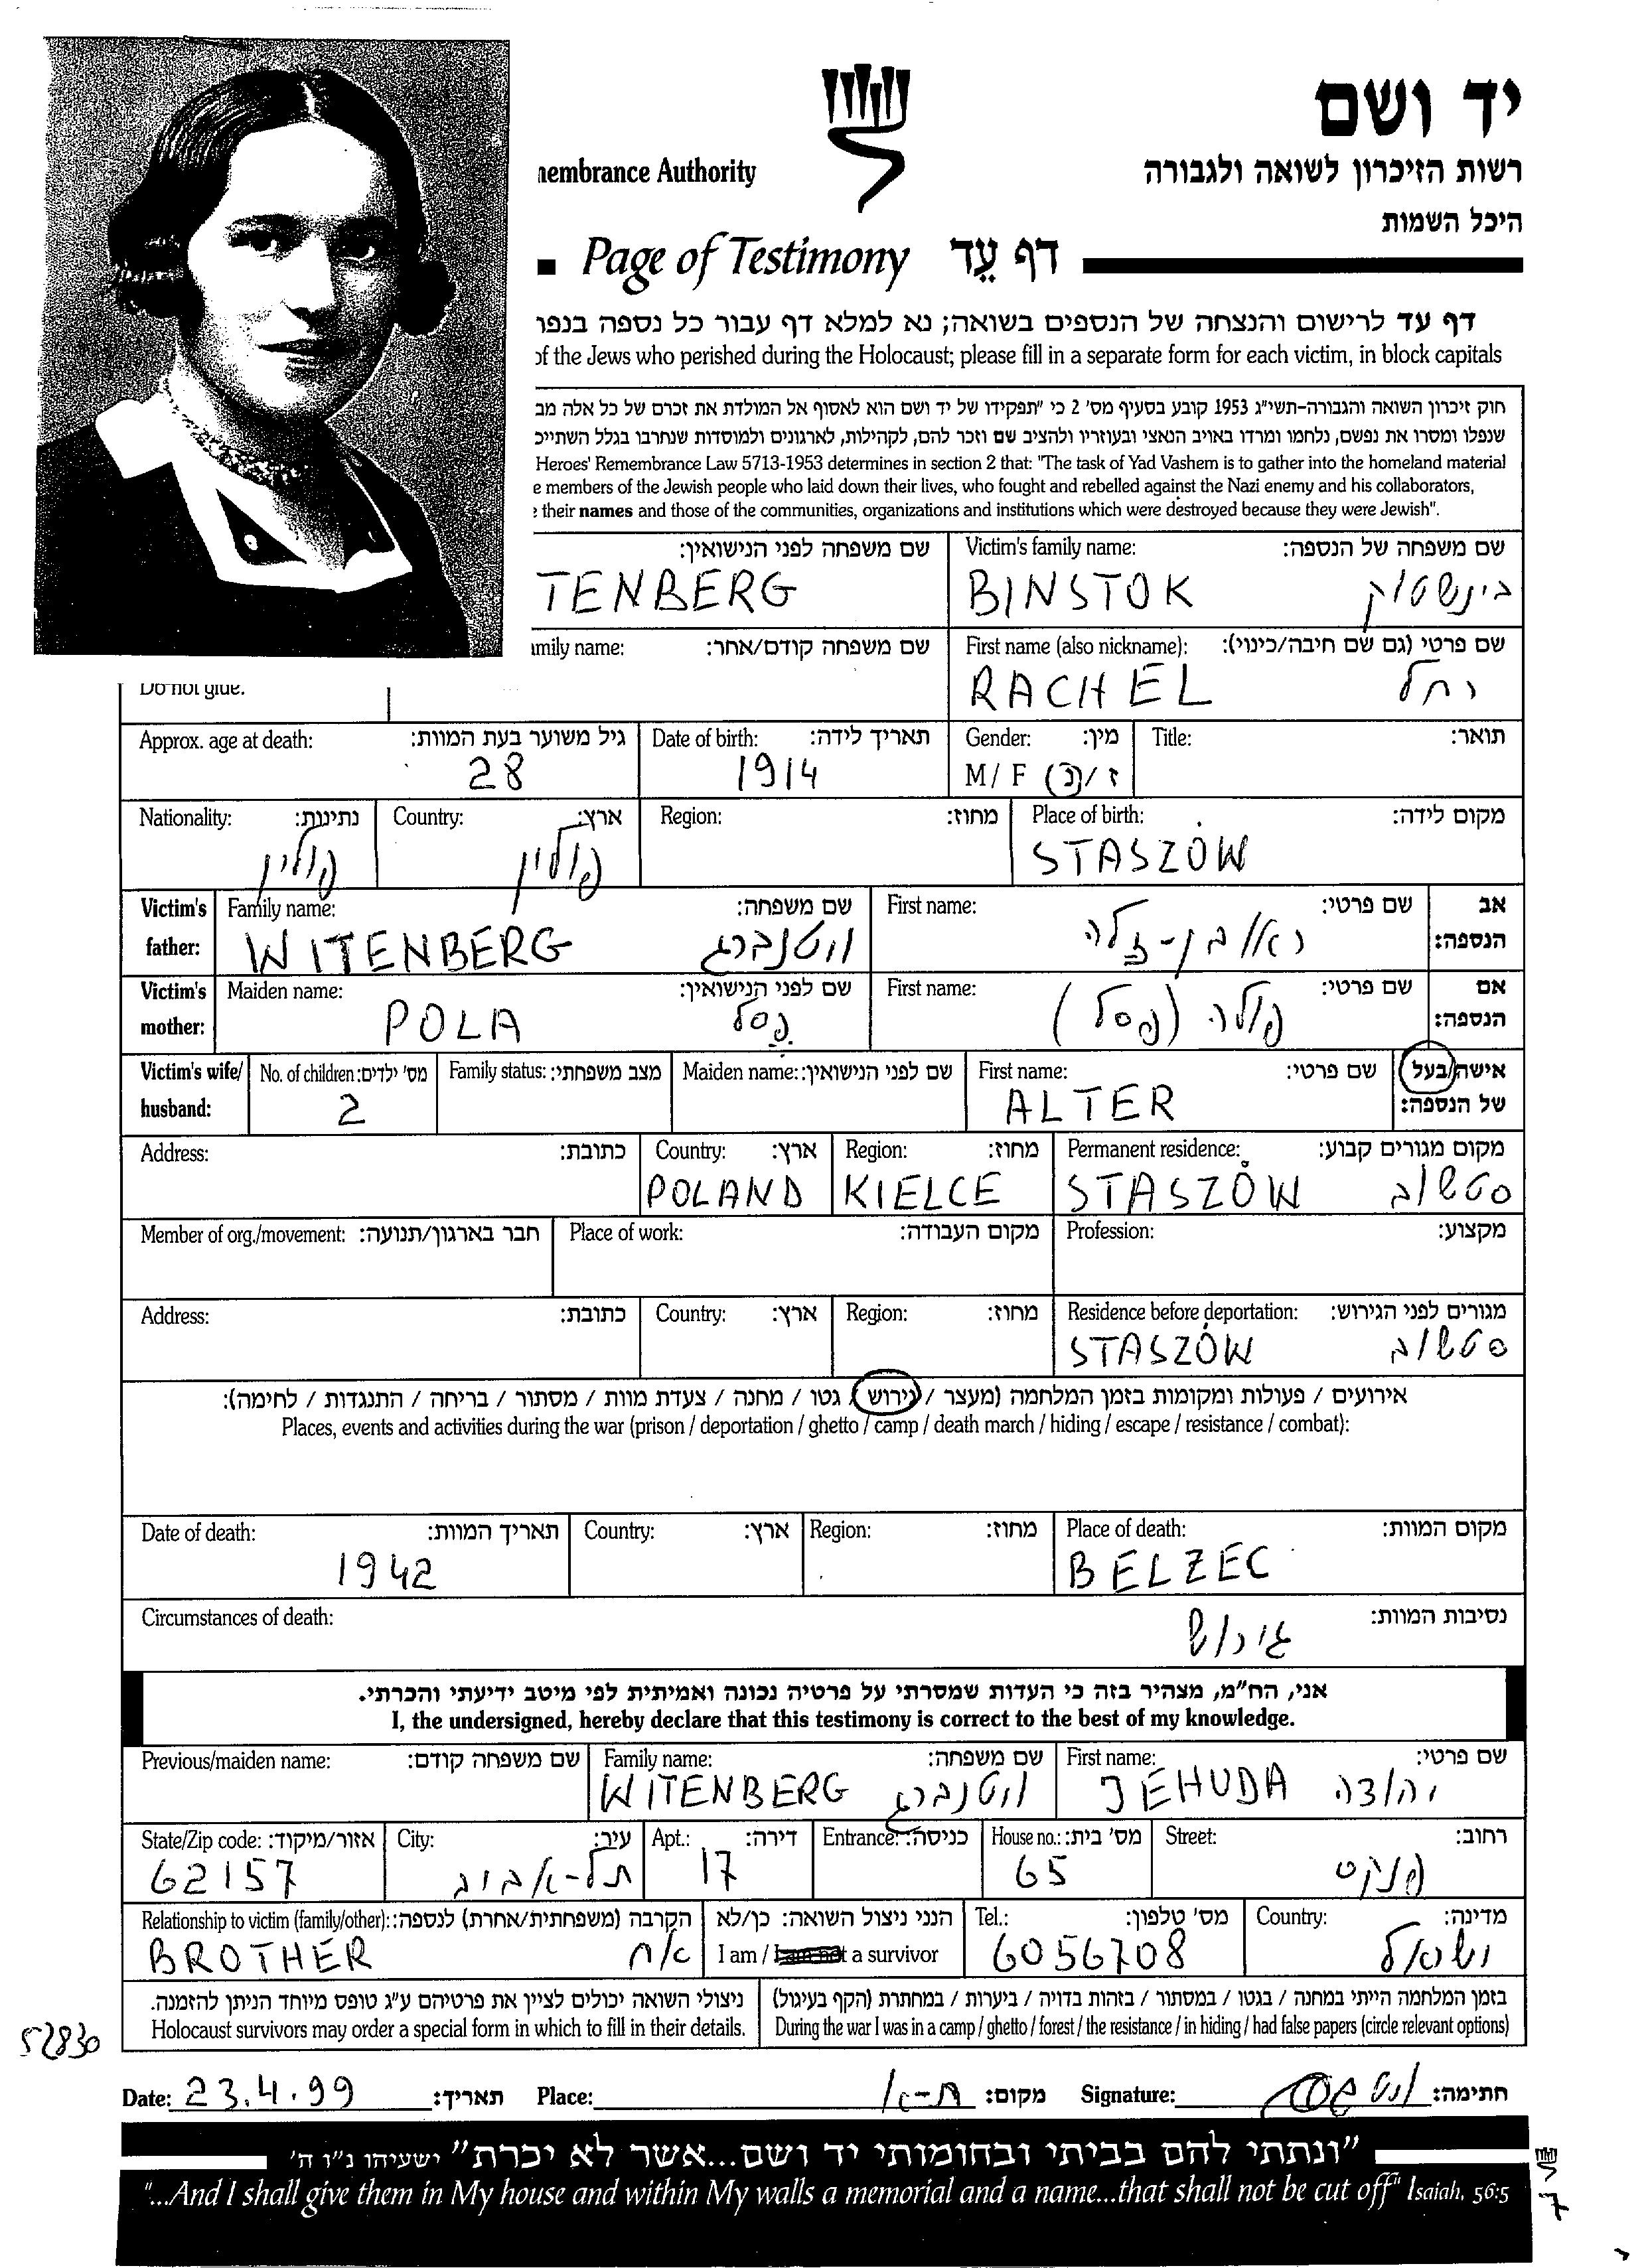 יד ושם
רשות הזיכרון לשואה ולגבורה
membrance Authority
היכל השמות
Page of Testimony דף עֵד
דף עד לרישום והנצחה של הנספים בשואה; נא למלא דף עבור כל נספה בנפו
of the Jews who perished during the Holocaust; please fill in a separate form for each victim, in block capitals
חוק זיכרון השואה והגבורה-תשי"ג 1953 קובע בסעיף מס' 2 כי "תפקידו של יד ושם הוא לאסוף אל המולדת את זכרם של כל אלה מב
שנפלו ומסרו את נפשם, נלחמו ומרדו באויב הנאצי ובעוזריו ולהציב שם וזכר להם, לקהילות, לארגונים ולמוסדות שנחרבו בגלל השתייכ
Heroes' Remembrance Law 5713-1953 determines in section 2 that: "The task of Yad Vashem is to gather into the homeland material
e members of the Jewish people who laid down their lives, who fought and rebelled against the Nazi enemy and his collaborators,
their names and those of the communities, organizations and institutions which were destroyed because they were Jewish".
שם משפחה לפני הנישואין: Victim's family name: שם משפחה של הנספה:
TENBERG BINSTOK בינשטוק
amily name: שם משפחה קודם/אחר: First name (also nickname): שם פרטי (גם שם חיבה/כינוי):
RACHEL רחל
Do not glue.
Approx. age at death: גיל משוער בעת המוות: Date of birth: תאריך לידה: Gender: מין: Title: תואר:
28 1914 M / F ז / נ
Nationality: נתינות: Country: ארץ: Region: מחוז: Place of birth: מקום לידה:
פולין פולין STASZÓW
Victim's father: Family name: שם משפחה: First name: שם פרטי: אב הנספה:
WITENBERG ויטנברג ראובן-זלה
Victim's mother: Maiden name: שם לפני הנישואין: First name: שם פרטי: אם הנספה:
POLA פסל פולה (פסל)
Victim's wife/ husband: No. of children: מס' ילדים: Family status: מצב משפחתי: Maiden name: שם לפני הנישואין: First name: שם פרטי: אישה/בעל של הנספה:
2 ALTER
Address: כתובת: Country: ארץ: Region: מחוז: Permanent residence: מקום מגורים קבוע:
POLAND KIELCE STASZÓW סטשוב
Member of org./movement: חבר בארגון/תנועה: Place of work: מקום העבודה: Profession: מקצוע:
Address: כתובת: Country: ארץ: Region: מחוז: Residence before deportation: מגורים לפני הגירוש:
STASZÓW סטשוב
אירועים / פעולות ומקומות בזמן המלחמה (מעצר / גירוש / גטו / מחנה / צעדת מוות / מסתור / בריחה / התנגדות / לחימה):
Places, events and activities during the war (prison / deportation / ghetto / camp / death march / hiding / escape / resistance / combat):
Date of death: תאריך המוות: Country: ארץ: Region: מחוז: Place of death: מקום המוות:
1942 BELZEC
Circumstances of death: נסיבות המוות:
גירוש
אני, הח"מ, מצהיר בזה כי העדות שמסרתי על פרטיה נכונה ואמיתית לפי מיטב ידיעתי והכרתי.
I, the undersigned, hereby declare that this testimony is correct to the best of my knowledge.
Previous/maiden name: שם משפחה קודם: Family name: שם משפחה: First name: שם פרטי:
WITENBERG ויטנברג JEHUDA יהודה
State/Zip code: אזור/מיקוד: City: עיר: Apt.: דירה: Entrance: כניסה: House no.: מס' בית: Street: רחוב:
62157 תל-אביב 17 65 פנקס
Relationship to victim (family/other): הקרבה (משפחתית/אחרת) לנספה: הנני ניצול השואה: כן/לא Tel.: מס' טלפון: Country: מדינה:
BROTHER אח I am / I am not a survivor 6056708 ישראל
ניצולי השואה יכולים לציין את פרטיהם ע"ג טופס מיוחד הניתן להזמנה. בזמן המלחמה הייתי במחנה / בגטו / במסתור / בזהות בדויה / ביערות / במחתרת (הקף בעיגול)
Holocaust survivors may order a special form in which to fill in their details. During the war I was in a camp / ghetto / forest / the resistance / in hiding / had false papers (circle relevant options)
52830
Date: 23.4.99 תאריך: Place: ת-א מקום: Signature: חתימה:
"ונתתי להם בביתי ובחומותי יד ושם...אשר לא יכרת" ישעיהו נ"ו ה'
"...And I shall give them in My house and within My walls a memorial and a name...that shall not be cut off" Isaiah, 56:5